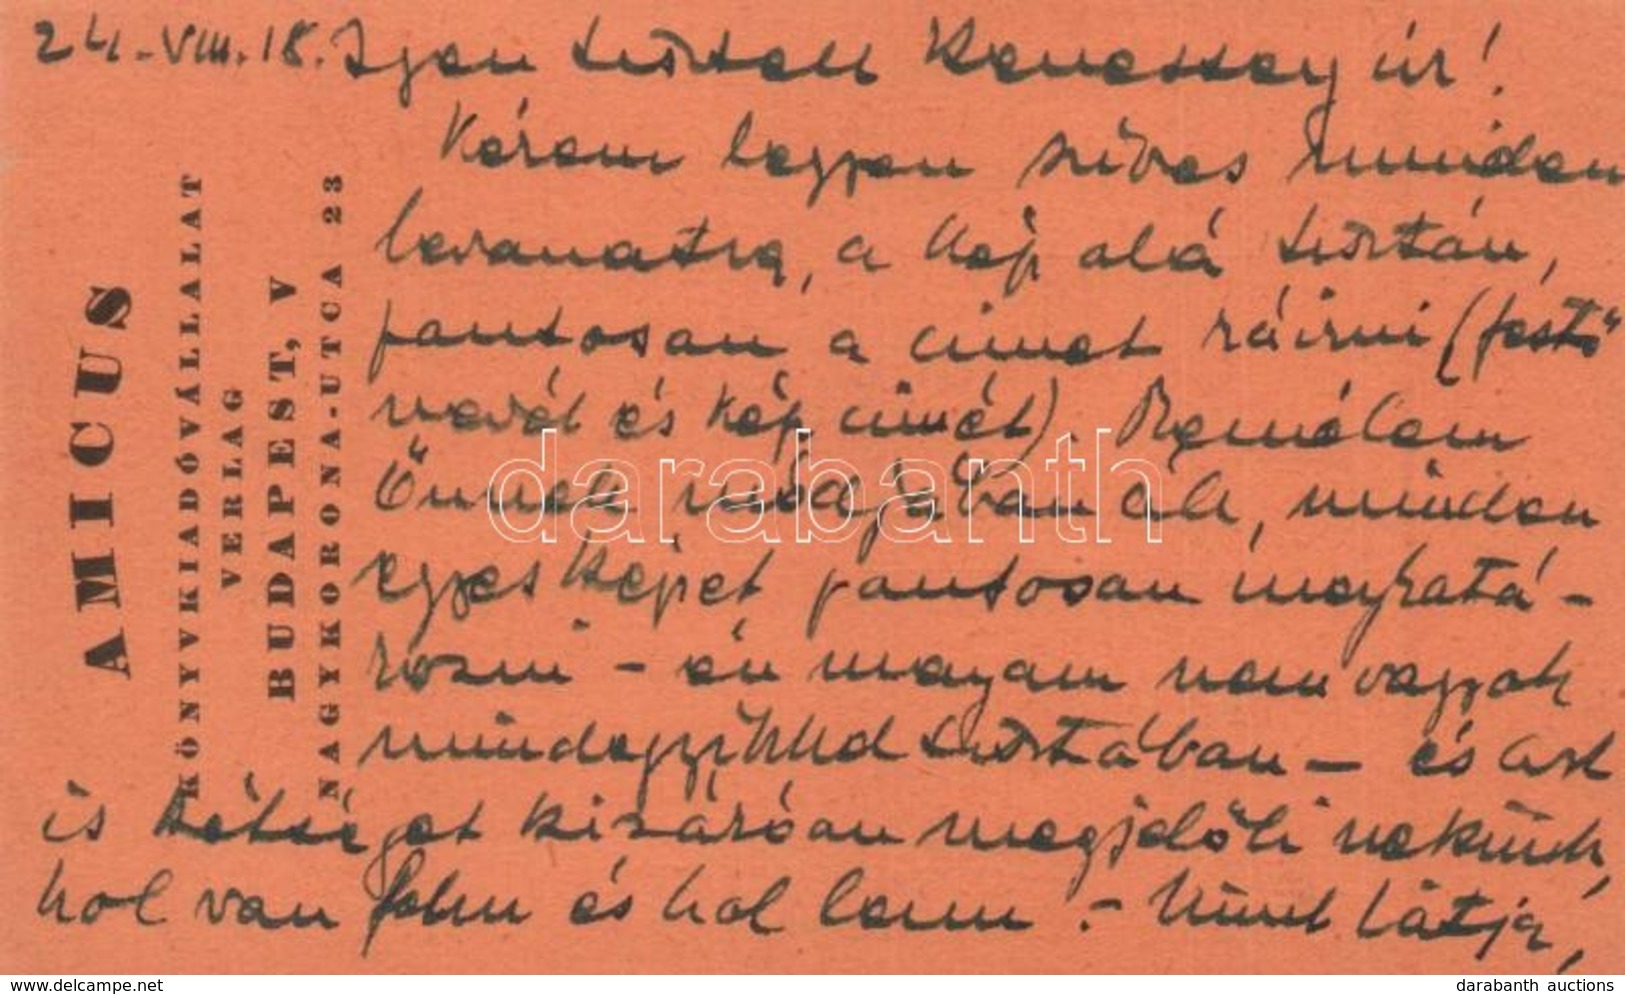 24. VIII. 18. Igen tisztelt Kenessey úr!
Kérem legyen szíves minden
levonatra, a kép alá tisztán,
pontosan a címet ráírni (festő
nevét és kép címét). Remélem
Önnek módjában áll, minden
egyes képet pontosan meghatá-
rozni – én magam nem vagyok
mindegyikkel tisztában – és azt
is kétséget kizáróan megjelöli nekünk,
hol van felül és hol lenn. – Mint látja,
AMICUS
KÖNYVKIADÓVÁLLALAT
VERLAG
BUDAPEST, V
NAGYKORONA-UTCA 23
darabanth
darabanth auctions